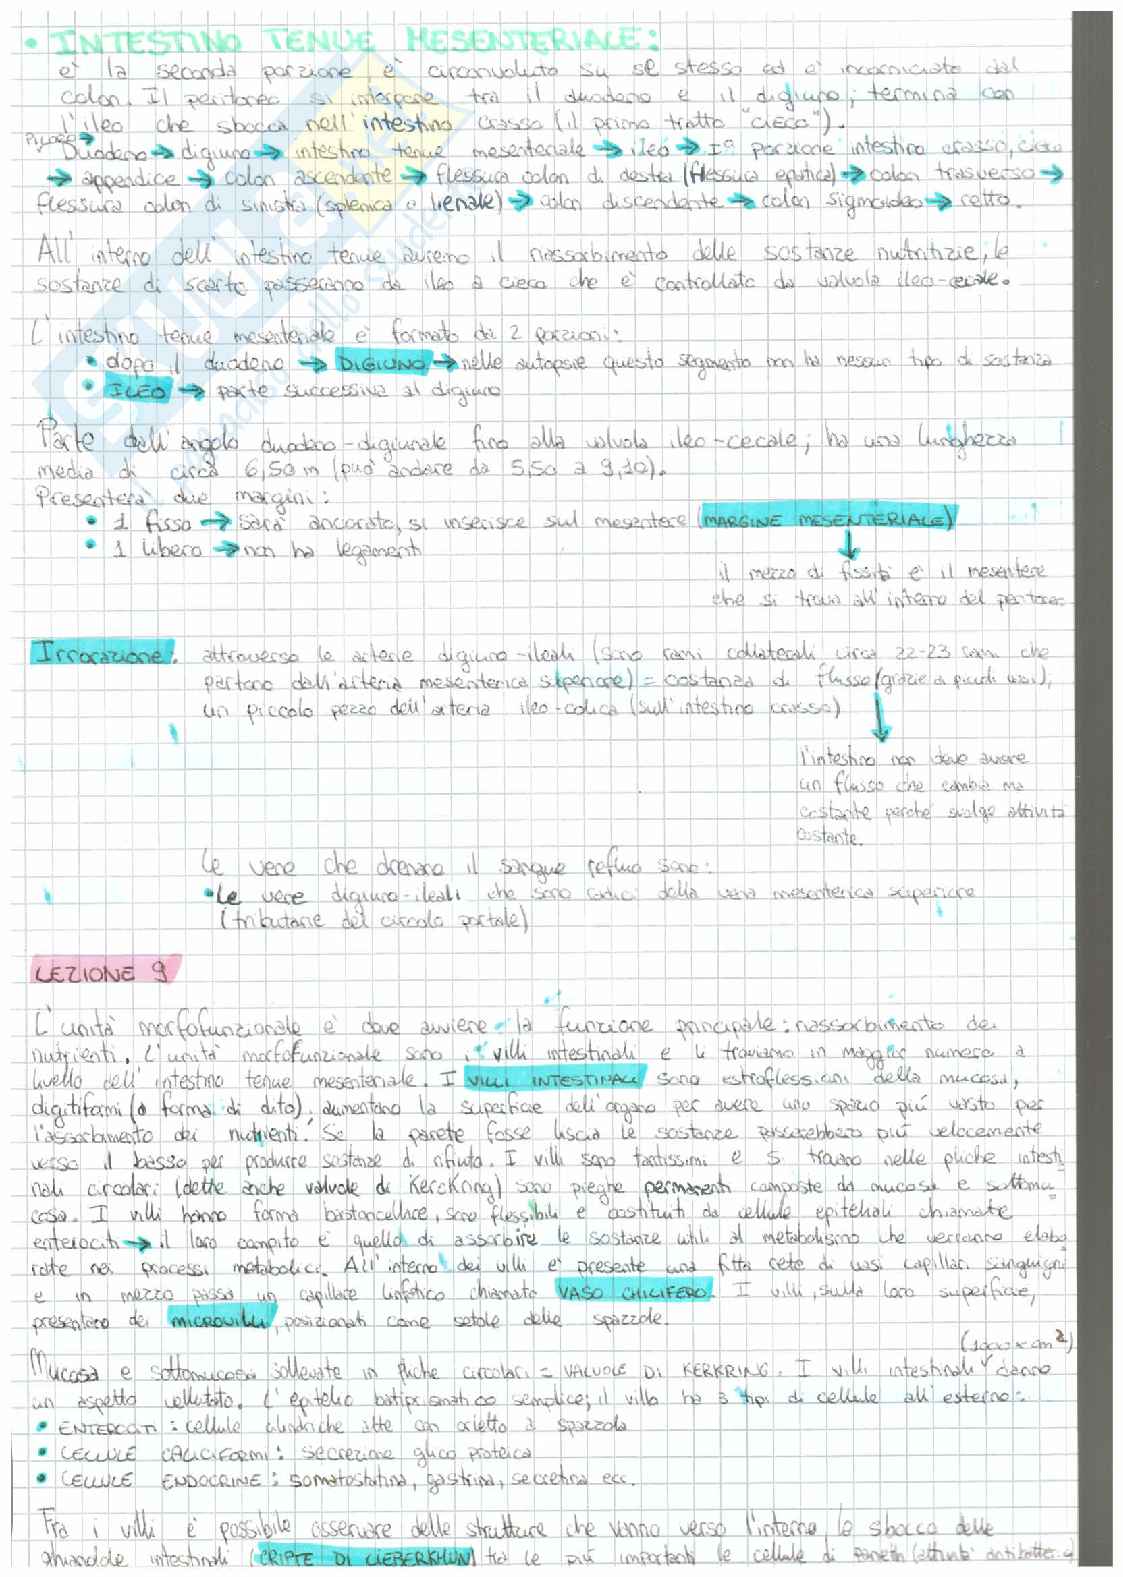 • INTESTINO TENUE MESENTERIALE:
è la seconda porzione, è circonvoluto su se stesso ed è incorniciato dal
colon. Il peritoneo si interpone tra il duodeno e il digiuno; termina con
l'ileo che sbocca nell'intestino crasso (il primo tratto "cieco").
Piloro →
Duodeno → digiuno → intestino tenue mesenteriale → ileo → Iª porzione intestino crasso, cieco
→ appendice → colon ascendente → flessura colon di destra (flessura epatica) → colon trasverso →
flessura colon di sinistra (splenica o lienale) → colon discendente → colon sigmoideo → retto.
All'interno dell'intestino tenue avremo il riassorbimento delle sostanze nutritizie, le
sostanze di scarto passeranno da ileo a cieco che è controllato da valvola ileo-cecale.
L'intestino tenue mesenteriale è formato da 2 porzioni:
• dopo il duodeno → DIGIUNO → nelle autopsie questo segmento non ha nessun tipo di sostanza
• ILEO → parte successiva al digiuno
Parte dall'angolo duodeno-digiunale fino alla valvola ileo-cecale; ha una lunghezza
media di circa 6,50 m (può andare da 5,50 a 9,10).
Presenterà due margini:
• 1 fisso → sarà ancorato, si inserisce sul mesentere (MARGINE MESENTERIALE)
• 1 libero → non ha legamenti
il mezzo di fissità è il mesentere
che si trova all'interno del peritoneo
Irrorazione: attraverso le arterie digiuno-ileali (sono rami collaterali circa 22-23 rami che
partono dall'arteria mesenterica superiore) = costanza di flusso (grazie a piccoli vasi),
un piccolo pezzo dell'arteria ileo-colica (sull'intestino crasso)
l'intestino non deve avere
un flusso che cambia ma
costante perché svolge attività
costante.
Le vene che drenano il sangue refluo sono:
• Le vene digiuno-ileali che sono radici della vena mesenterica superiore
(tributarie del circolo portale)
LEZIONE 9
L'unità morfofunzionale è dove avviene la funzione principale: riassorbimento dei
nutrienti. L'unità morfofunzionale sono i villi intestinali e li troviamo in maggior numero a
livello dell'intestino tenue mesenteriale. I VILLI INTESTINALI sono estroflessioni della mucosa,
digitiformi (a forma di dito), aumentano la superficie dell'organo per avere uno spazio più vasto per
l'assorbimento dei nutrienti. Se la parete fosse liscia le sostanze passerebbero più velocemente
verso il basso per produrre sostanze di rifiuto. I villi sono tantissimi e si trovano nelle pliche intesti
nali circolari (dette anche valvole di Kerckring) sono pieghe permanenti composte da mucosa e sottomu
cosa. I villi hanno forma bastoncellare, sono flessibili e costituiti da cellule epiteliali chiamate
enterociti → il loro compito è quello di assorbire le sostanze utili al metabolismo che verranno elabo
rate nei processi metabolici. All'interno dei villi è presente una fitta rete di vasi capillari sanguigni
e in mezzo passa un capillare linfatico chiamato VASO CHILIFERO. I villi, sulla loro superficie,
presentano dei MICROVILLI, posizionati come setole delle spazzole.
(1000 x cm²)
Mucosa e sottomucosa sollevate in pliche circolari = VALVOLE DI KERKRING. I villi intestinali danno
un aspetto vellutato. L'epitelio batiprismatico semplice; il villo ha 3 tipi di cellule all'esterno:
• ENTEROCITI: cellule cilindriche alte con orletto a spazzola
• CELLULE CALICIFORMI: secrezione glico proteica
• CELLULE ENDOCRINE: somatostatina, gastrina, secretina ecc.
Fra i villi è possibile osservare delle strutture che vanno verso l'interno lo sbocco delle
ghiandole intestinali (CRIPTE DI LIEBERKHUN) tra le più importanti le cellule di Paneth (attività antibatterica)